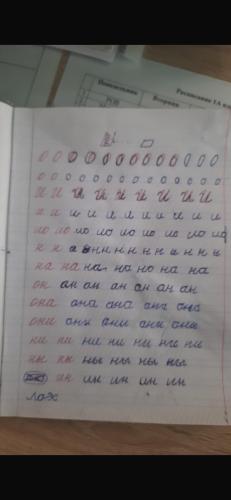 Понедельник Вторник Расписание 1А
О О О О О О О О О О О О О О
о о о о о о о о о о о о о
И И И И И И И И
и и и и и и и и и и
ио ио ио ио ио ио ио ио ио
н н н н н н н н н н
на на на на но на на
он он он он он он он
она она она она она
они они они они они
ни ни ни ни ни ни ни
ны ны ны ны ны ны
ин ин ин ин ин
лох